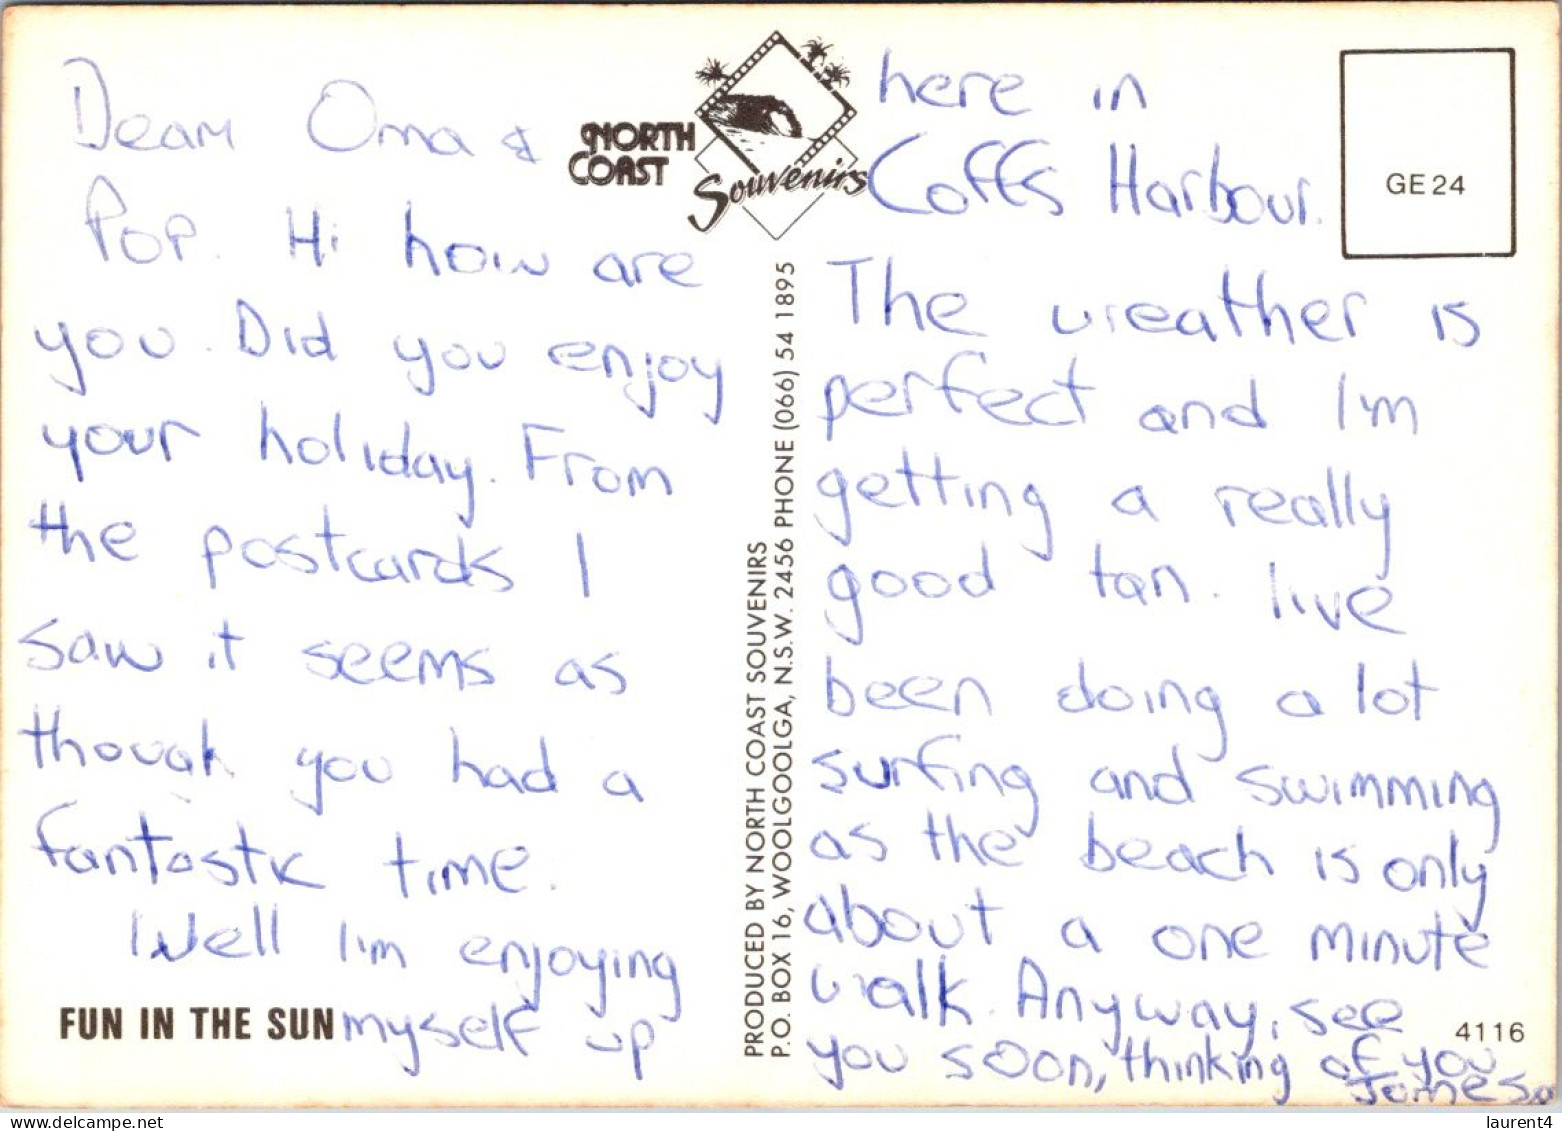 Dear Oma &
Pop. Hi how are
you. Did you enjoy
your holiday. From
the postcards I
saw it seems as
though you had a
fantastic time.
Well I'm enjoying
myself up
FUN IN THE SUN
NORTH
COAST
Souvenirs
PRODUCED BY NORTH COAST SOUVENIRS
P.O. BOX 16, WOOLGOOLGA, N.S.W. 2456 PHONE (066) 54 1895
here in
Coffs Harbour.
GE 24
The weather is
perfect and I'm
getting a really
good tan. I've
been doing a lot
surfing and swimming
as the beach is only
about a one minute
walk. Anyway, see
you soon, thinking of you
James
4116
laurent4